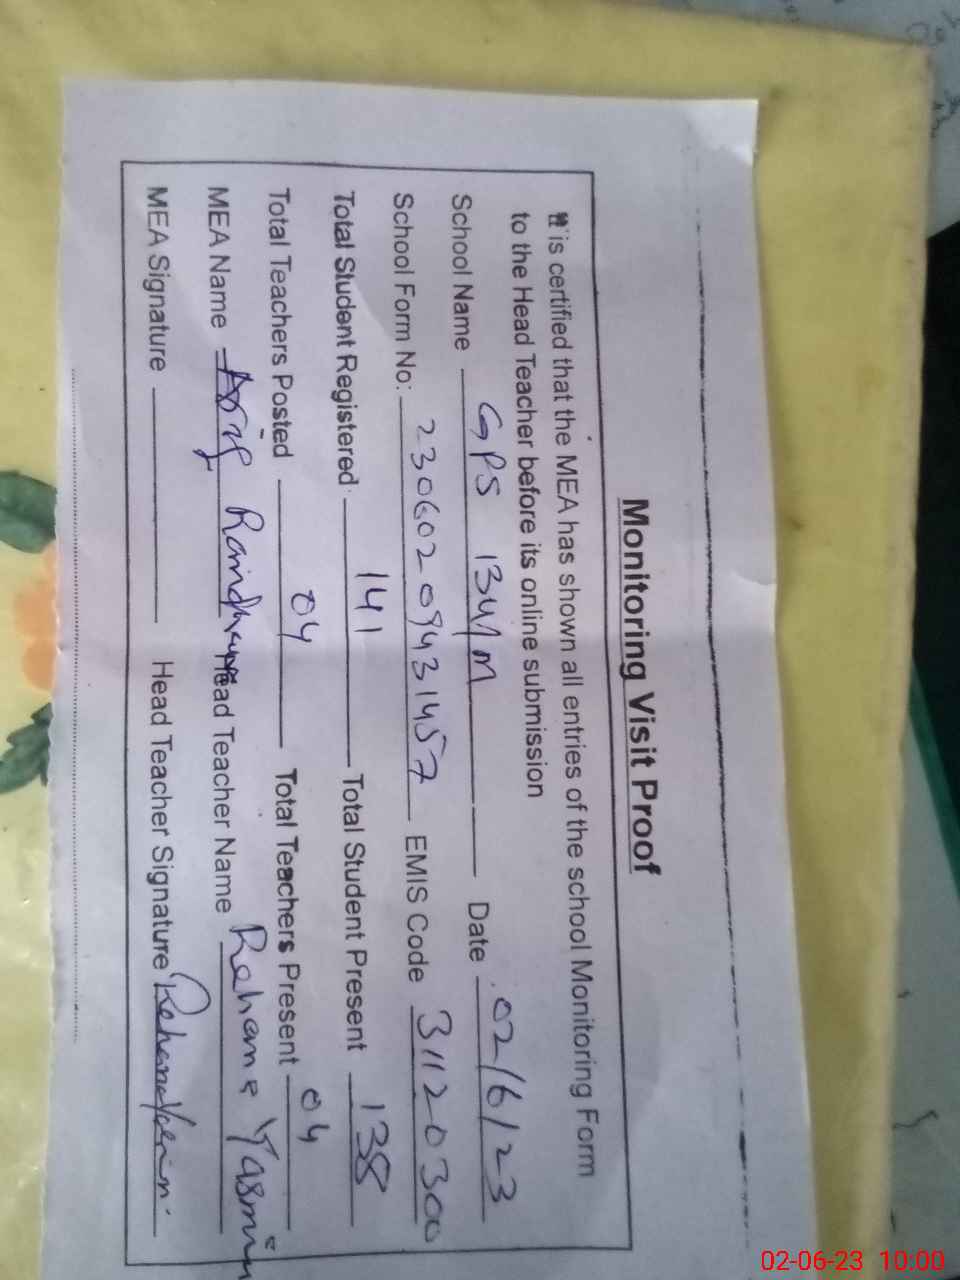 Monitoring Visit Proof
It is certified that the MEA has shown all entries of the school Monitoring Form
to the Head Teacher before its online submission
School Name GPS 134/M Date 02/6/23
School Form No: 23060209431457 EMIS Code 31120300
Total Student Registered 141 Total Student Present 138
Total Teachers Posted 04 Total Teachers Present 04
MEA Name Head Teacher Name Rehana Yasmin
MEA Signature Head Teacher Signature Rehana Yasmin
02-06-23 10:00